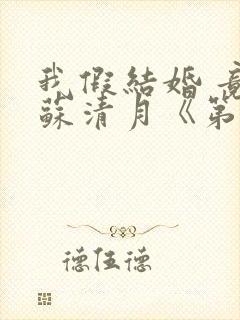 我假結婚
蘇清月《第
德伍德